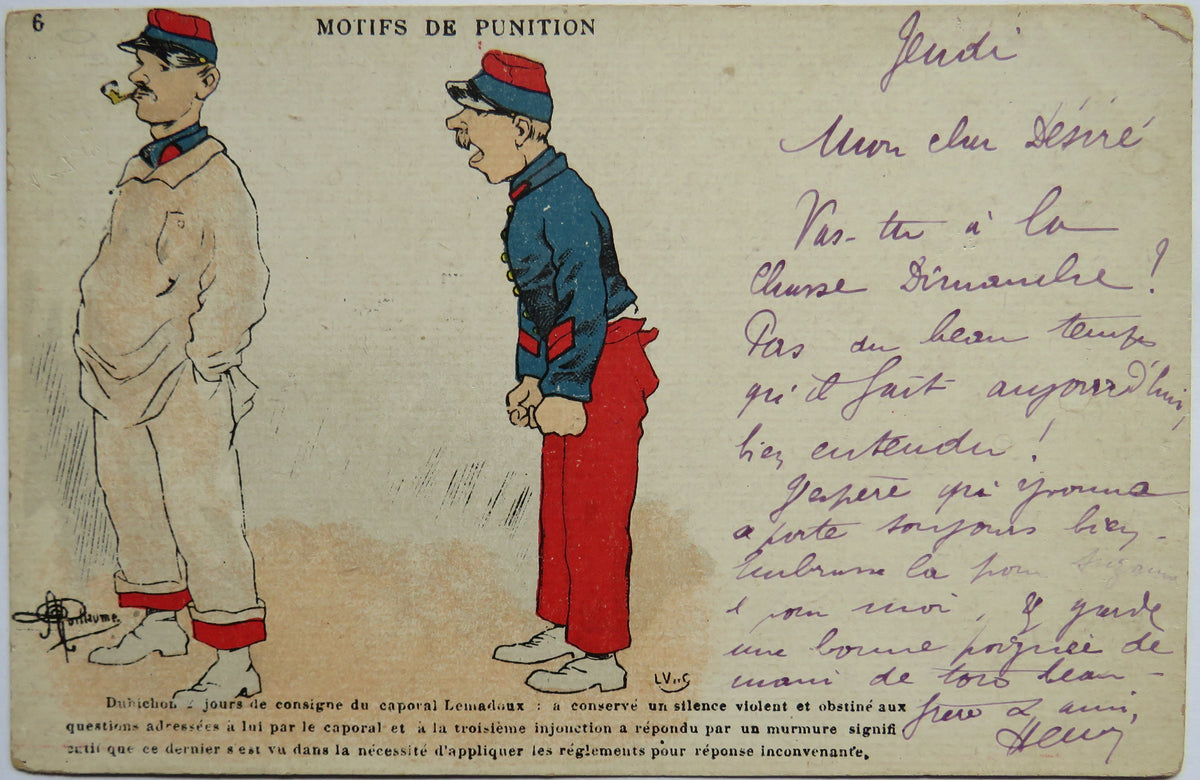 6
MOTIFS DE PUNITION
Jeudi
Mon cher Désiré
Vas-tu à la
chasse Dimanche !
Pas du beau temps
qu'il fait aujourd'hui,
bien entendu !
J'espère qu'Yvonne
se porte toujours bien.
Embrasse la pour Suzanne
& pour moi, & garde
une bonne poignée de
main de ton beau-
frère & ami,
Henry
Guillaume
LV & C
Dubichon 2 jours de consigne du caporal Lemadoux : a conservé un silence violent et obstiné aux
questions adressées à lui par le caporal et à la troisième injonction a répondu par un murmure signifi
catif que ce dernier s'est vu dans la nécessité d'appliquer les réglements pour réponse inconvenante.